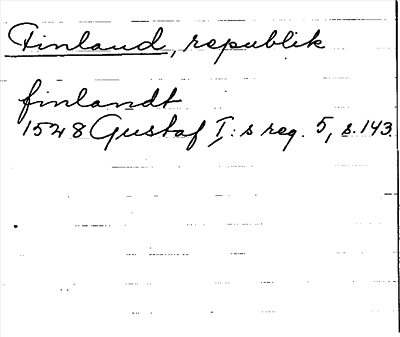 Finland, republik
finlandt
1528 Gustaf I:s reg. 5, s. 143.